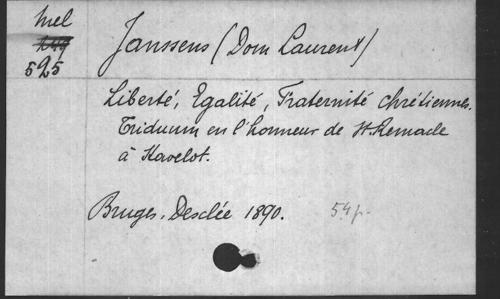 Mel
525
Janssens (Dom Laurent)
Liberté, Egalité, Fraternité chrétiennes.
Triduum en l'honneur de St. Remacle
à Stavelot.
Bruges, Desclée 1890. 54 p.